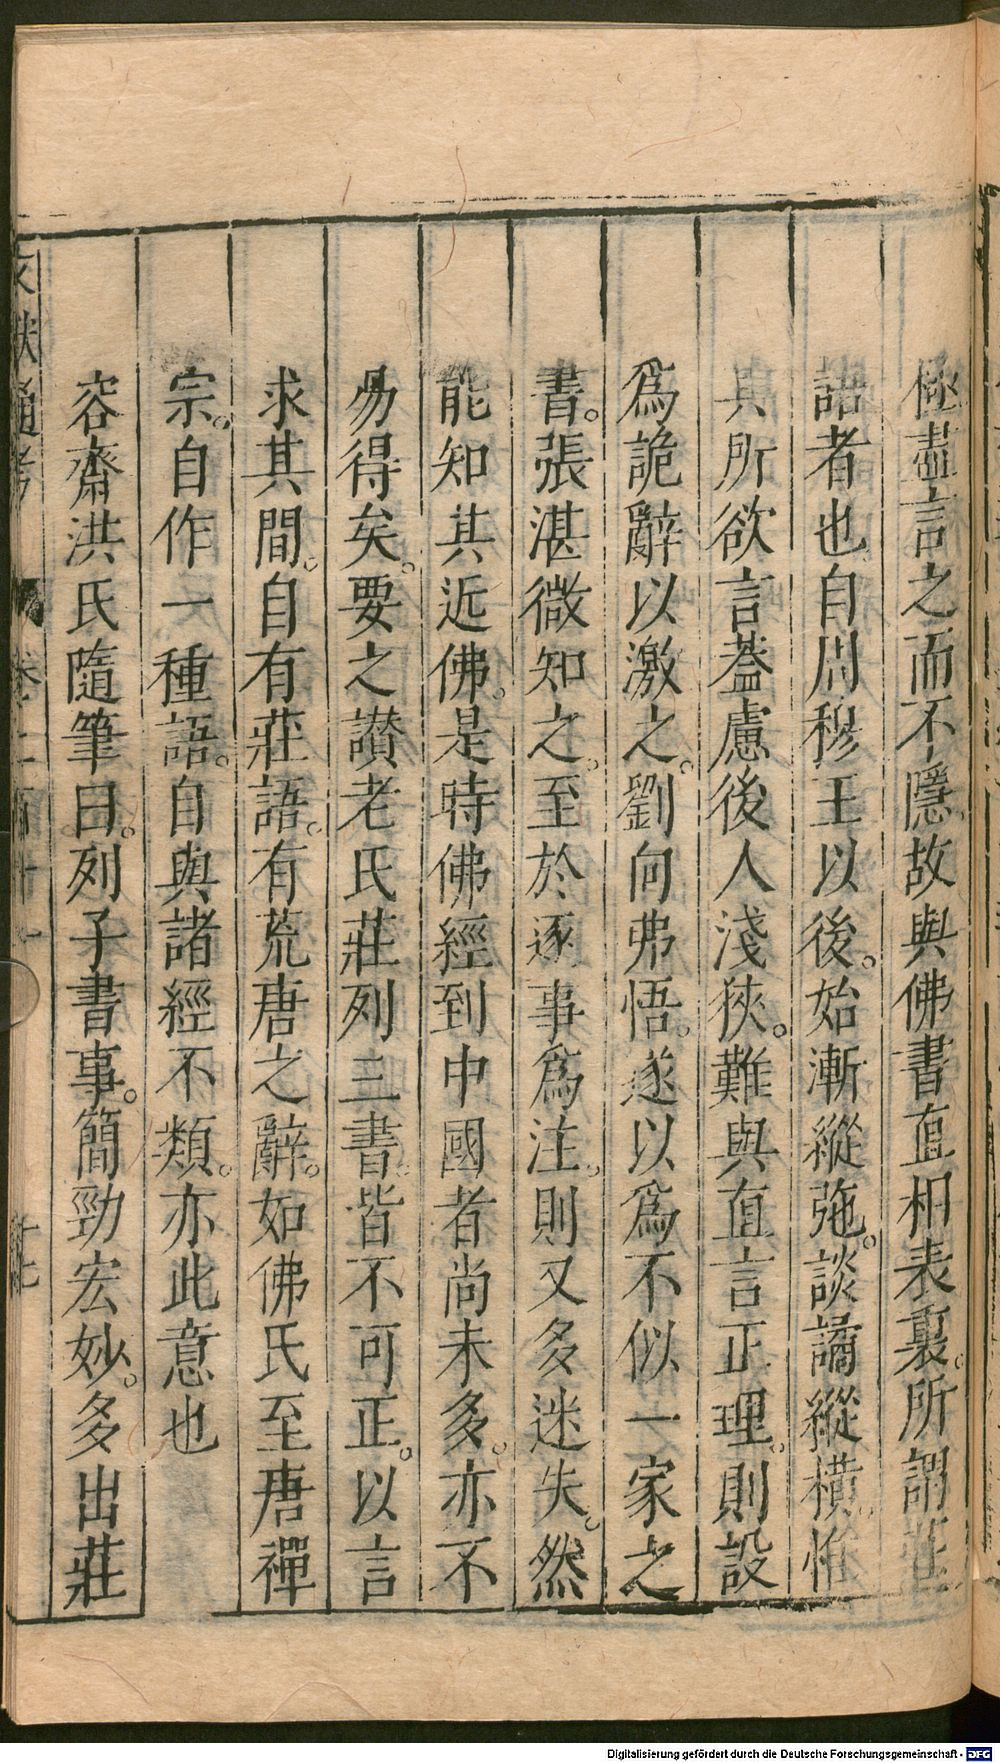 極盡言之而不隱故與佛書直相表裏。所謂莊
語者也自周穆王以後。始漸縱弛。談譎縱橫。惟
其所欲言蓋慮後人淺狹。難與直言正理。則設
爲詭辭以激之。劉向弗悟。遂以爲不似一家之
書。張湛微知之。至於逐事爲注。則又多迷失。然
能知其近佛。是時佛經到中國者尚未多。亦不
易得矣。要之讃老氏莊列三書皆不可正。以言
求其間。自有莊語。有荒唐之辭。如佛氏至唐禪
宗。自作一種語。自與諸經不類。亦此意也
容齋洪氏隨筆曰。列子書事。簡勁宏妙。多出莊
文獻通考 卷二百十一
Digitalisierung gefördert durch die Deutsche Forschungsgemeinschaft - DFG